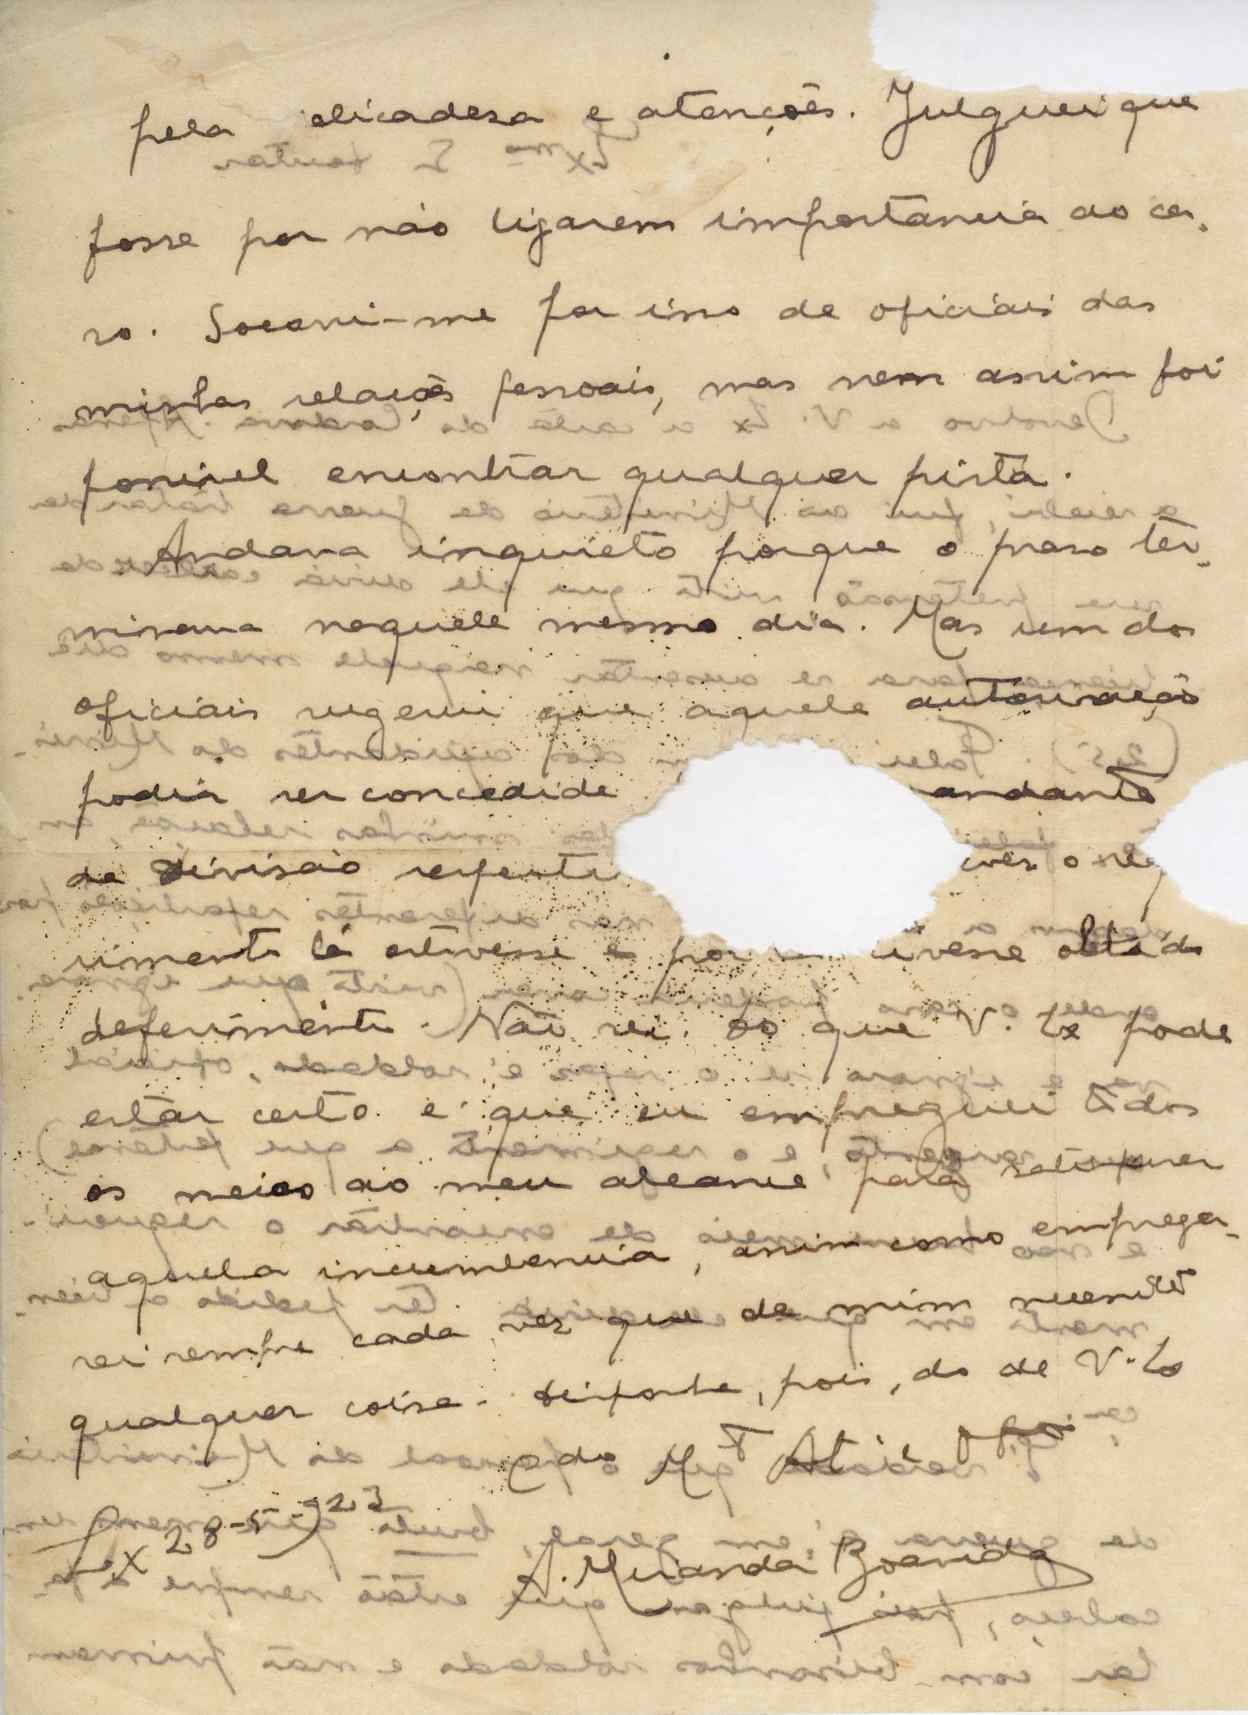 pela dlicadesa e atenções. Julguei que
fosse por não ligarem importancia ao ca-
so. Socorri-me por isso de oficiais das
minhas relações pessoais, mas nem assim foi
possivel encontrar qualquer pista.
Andava inquieto porque o praso ter-
minava naquele mesmo dia. Mas um dos
oficiais sugeriu que aquele autorisação
podia ser concedida andante
de divisão respeti o
rimento lá estivesse e tivesse obtido
deferimento. Não sei. So que V. Ex pode
estar certo é que eu empreguei todos
os meios ao meu alcance para satisfazer
aquela incumbencia, assim como emprega-
rei sempre cada vez que de mim necessite
qualquer coisa. Disponha, pois, do de V. Ex
cdo Mto At
Lx 28-5-923
A. Miranda Boavida